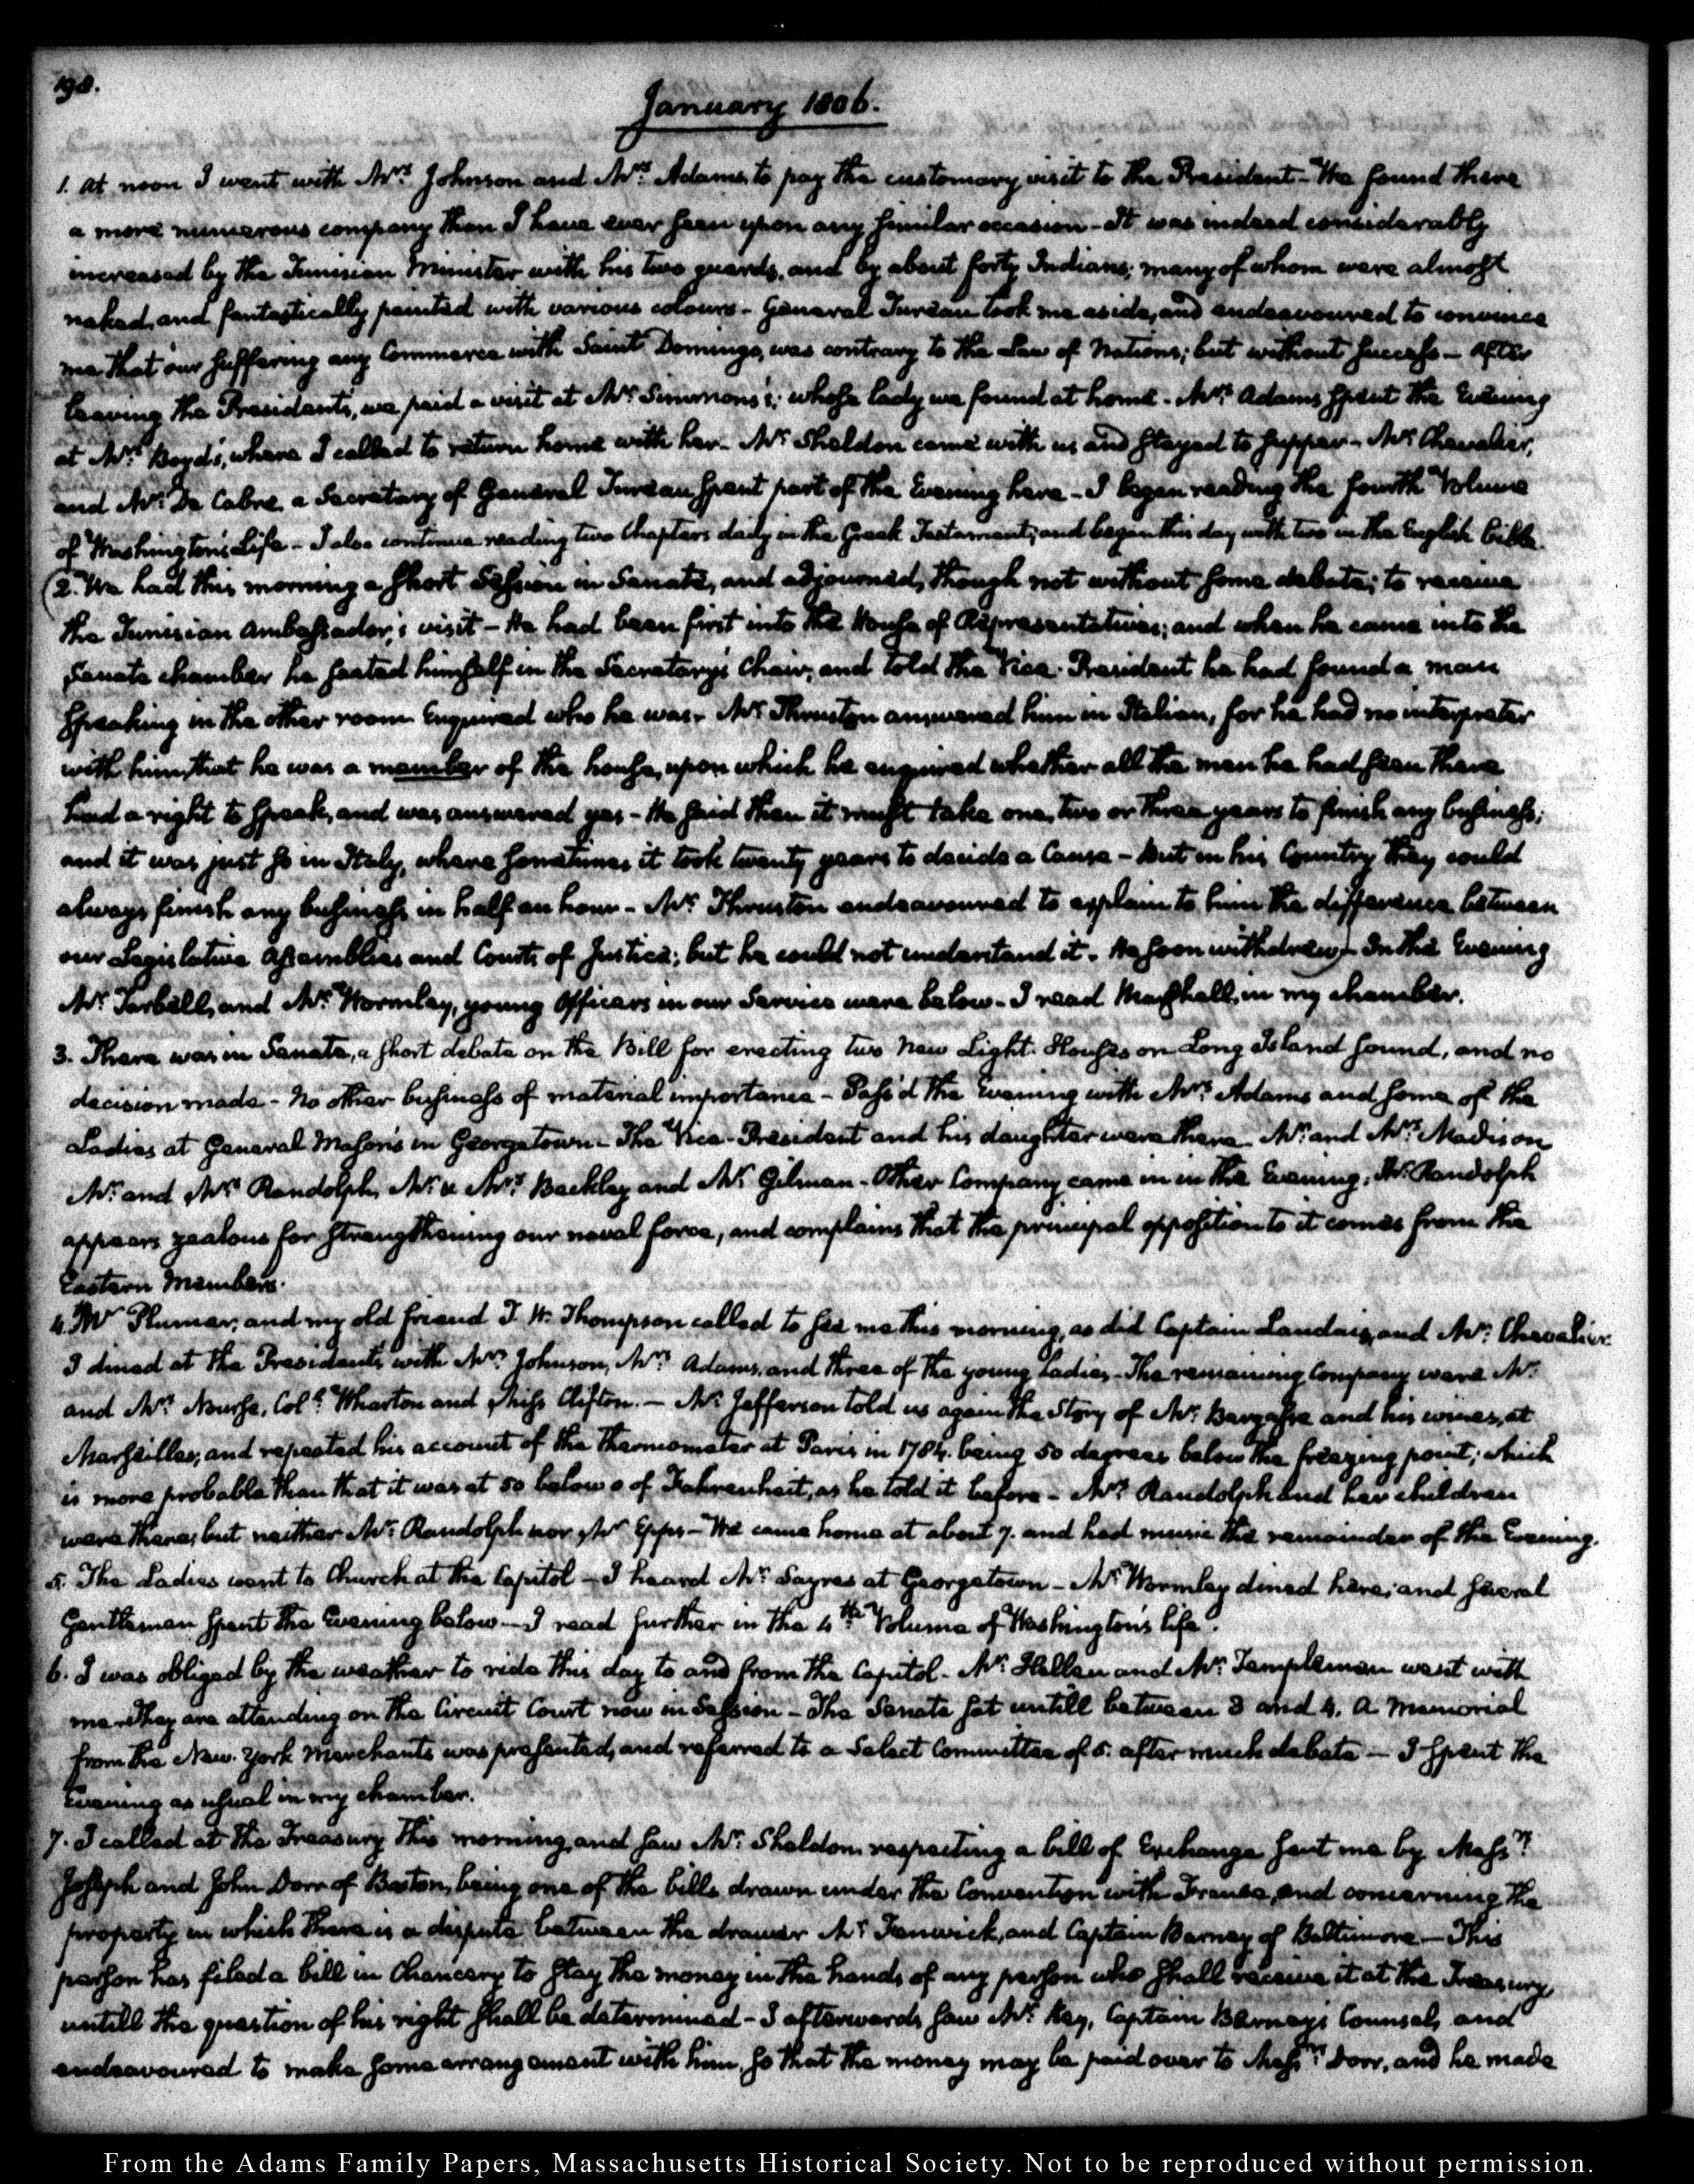 198.
January 1806.
1. At noon I went with Mrs. Johnson and Mrs. Adams, to pay the customary visit to the President - We found there
a more numerous company than I have ever seen upon any similar occasion - It was indeed considerably
increased by the Tunisian Minister with his two guards, and by about forty Indians; many of whom were almost
naked, and fantastically painted with various colours - General Tureau took me aside, and endeavoured to convince
me that our suffering any Commerce with Saint Domingo, was contrary to the Law of Nations; but without success - After
leaving the President's, we paid a visit at Mr. Simmons's; whose lady we found at home - Mrs. Adams spent the Evening
at Mrs. Boyd's, where I called to return home with her - Mr. Sheldon came with us and stayed to supper - Mr. Chevalier,
and Mr. De Cabre, a Secretary of General Tureau spent part of the Evening here - I began reading the fourth Volume
of Washington's Life - I also continue reading two Chapters daily in the Greek Testament; and began this day with two in the English bible.
(2. We had this morning a short Session in Senate, and adjourned, though not without some debate; to receive
the Tunisian Ambassador's visit - He had been first into the House of Representatives; and when he came into the
Senate chamber he seated himself in the Secretary's Chair, and told the Vice-President he had found a man
speaking in the other room Enquired who he was - Mr. Thruston answered him in Italian, for he had no interpreter
with him, that he was a member of the house, upon which he enquired whether all the men he had seen there
had a right to speak, and was answered yes - He said then it must take one, two or three years to finish any business;
and it was just so in Italy, where sometimes it took twenty years to decide a Cause - But in his Country they could
always finish any business in half an hour - Mr. Thruston endeavoured to explain to him the difference between
our Legislative Assemblies and Courts of Justice; but he could not understand it - He soon withdrew) - In the Evening
Mr. Tarbell, and Mr. Wormley, young Officers in our Service were below - I read Marshall, in my chamber.
3. There was in Senate, a short debate on the Bill for erecting two new Light-Houses on Long Island sound, and no
decision made - No other business of material importance - Pass'd the Evening with Mrs. Adams and some of the
Ladies at General Mason's in Georgetown - The Vice-President and his daughter were there - Mr. and Mrs. Madison
Mr. and Mrs. Randolph, Mr. & Mrs. Beckley and Mr. Gilman - Other Company came in in the Evening; Mr. Randolph
appears zealous for strengthening our naval force, and complains that the principal opposition to it comes from the
Eastern Members.
4. Mr Plumer, and my old friend T. W. Thompson called to see me this morning, as did Captain Landais, and Mr. Chevalier
I dined at the President's with Mrs. Johnson, Mrs. Adams, and three of the young Ladies - The remaining Company were Mr.
and Mrs. Nourse, Coll. Wharton and Miss Clifton. - Mr. Jefferson told us again the Story of Mr. Bergasse and his wines, at
Marseilles; and repeated his account of the Thermometer at Paris in 1784. being 50 degrees below the freezing point; which
is more probable than that it was at 50 below 0 of Fahrenheit, as he told it before - Mrs. Randolph and her children
were there; but neither Mr. Randolph nor Mr Epps - We came home at about 7. and had music the remainder of the Evening.
5. The Ladies went to Church at the Capitol - I heard Mr. Sayres at Georgetown - Mr. Wormley dined here; and several
Gentlemen spent the Evening below - I read further in the 4th. Volume of Washington's life.
6. I was obliged by the weather to ride this day to and from the Capitol - Mr. Hellen and Mr. Templeman went with
me - They are attending on the Circuit Court now in Session - The Senate sat untill between 3 and 4. A Memorial
from the New-York Merchants was presented, and referred to a Select Committee of 5. after much debate - I spent the
Evening as usual in my chamber.
7. I called at the Treasury this morning, and saw Mr. Sheldon respecting a bill of Exchange sent me by Messrs.
Joseph and John Dorr of Boston, being one of the bills drawn under the Convention with France, and concerning the
property in which there is a dispute between the drawer Mr. Fenwick, and Captain Barney of Baltimore - This
person has filed a bill in Chancery to stay the money in the hands of any person who shall receive it at the Treasury,
untill the question of his right shall be determined - I afterwards saw Mr. Key, Captain Barney's Counsel, and
endeavoured to make some arrangement with him, so that the money may be paid over to Messrs. Dorr, and he made
From the Adams Family Papers, Massachusetts Historical Society. Not to be reproduced without permission.